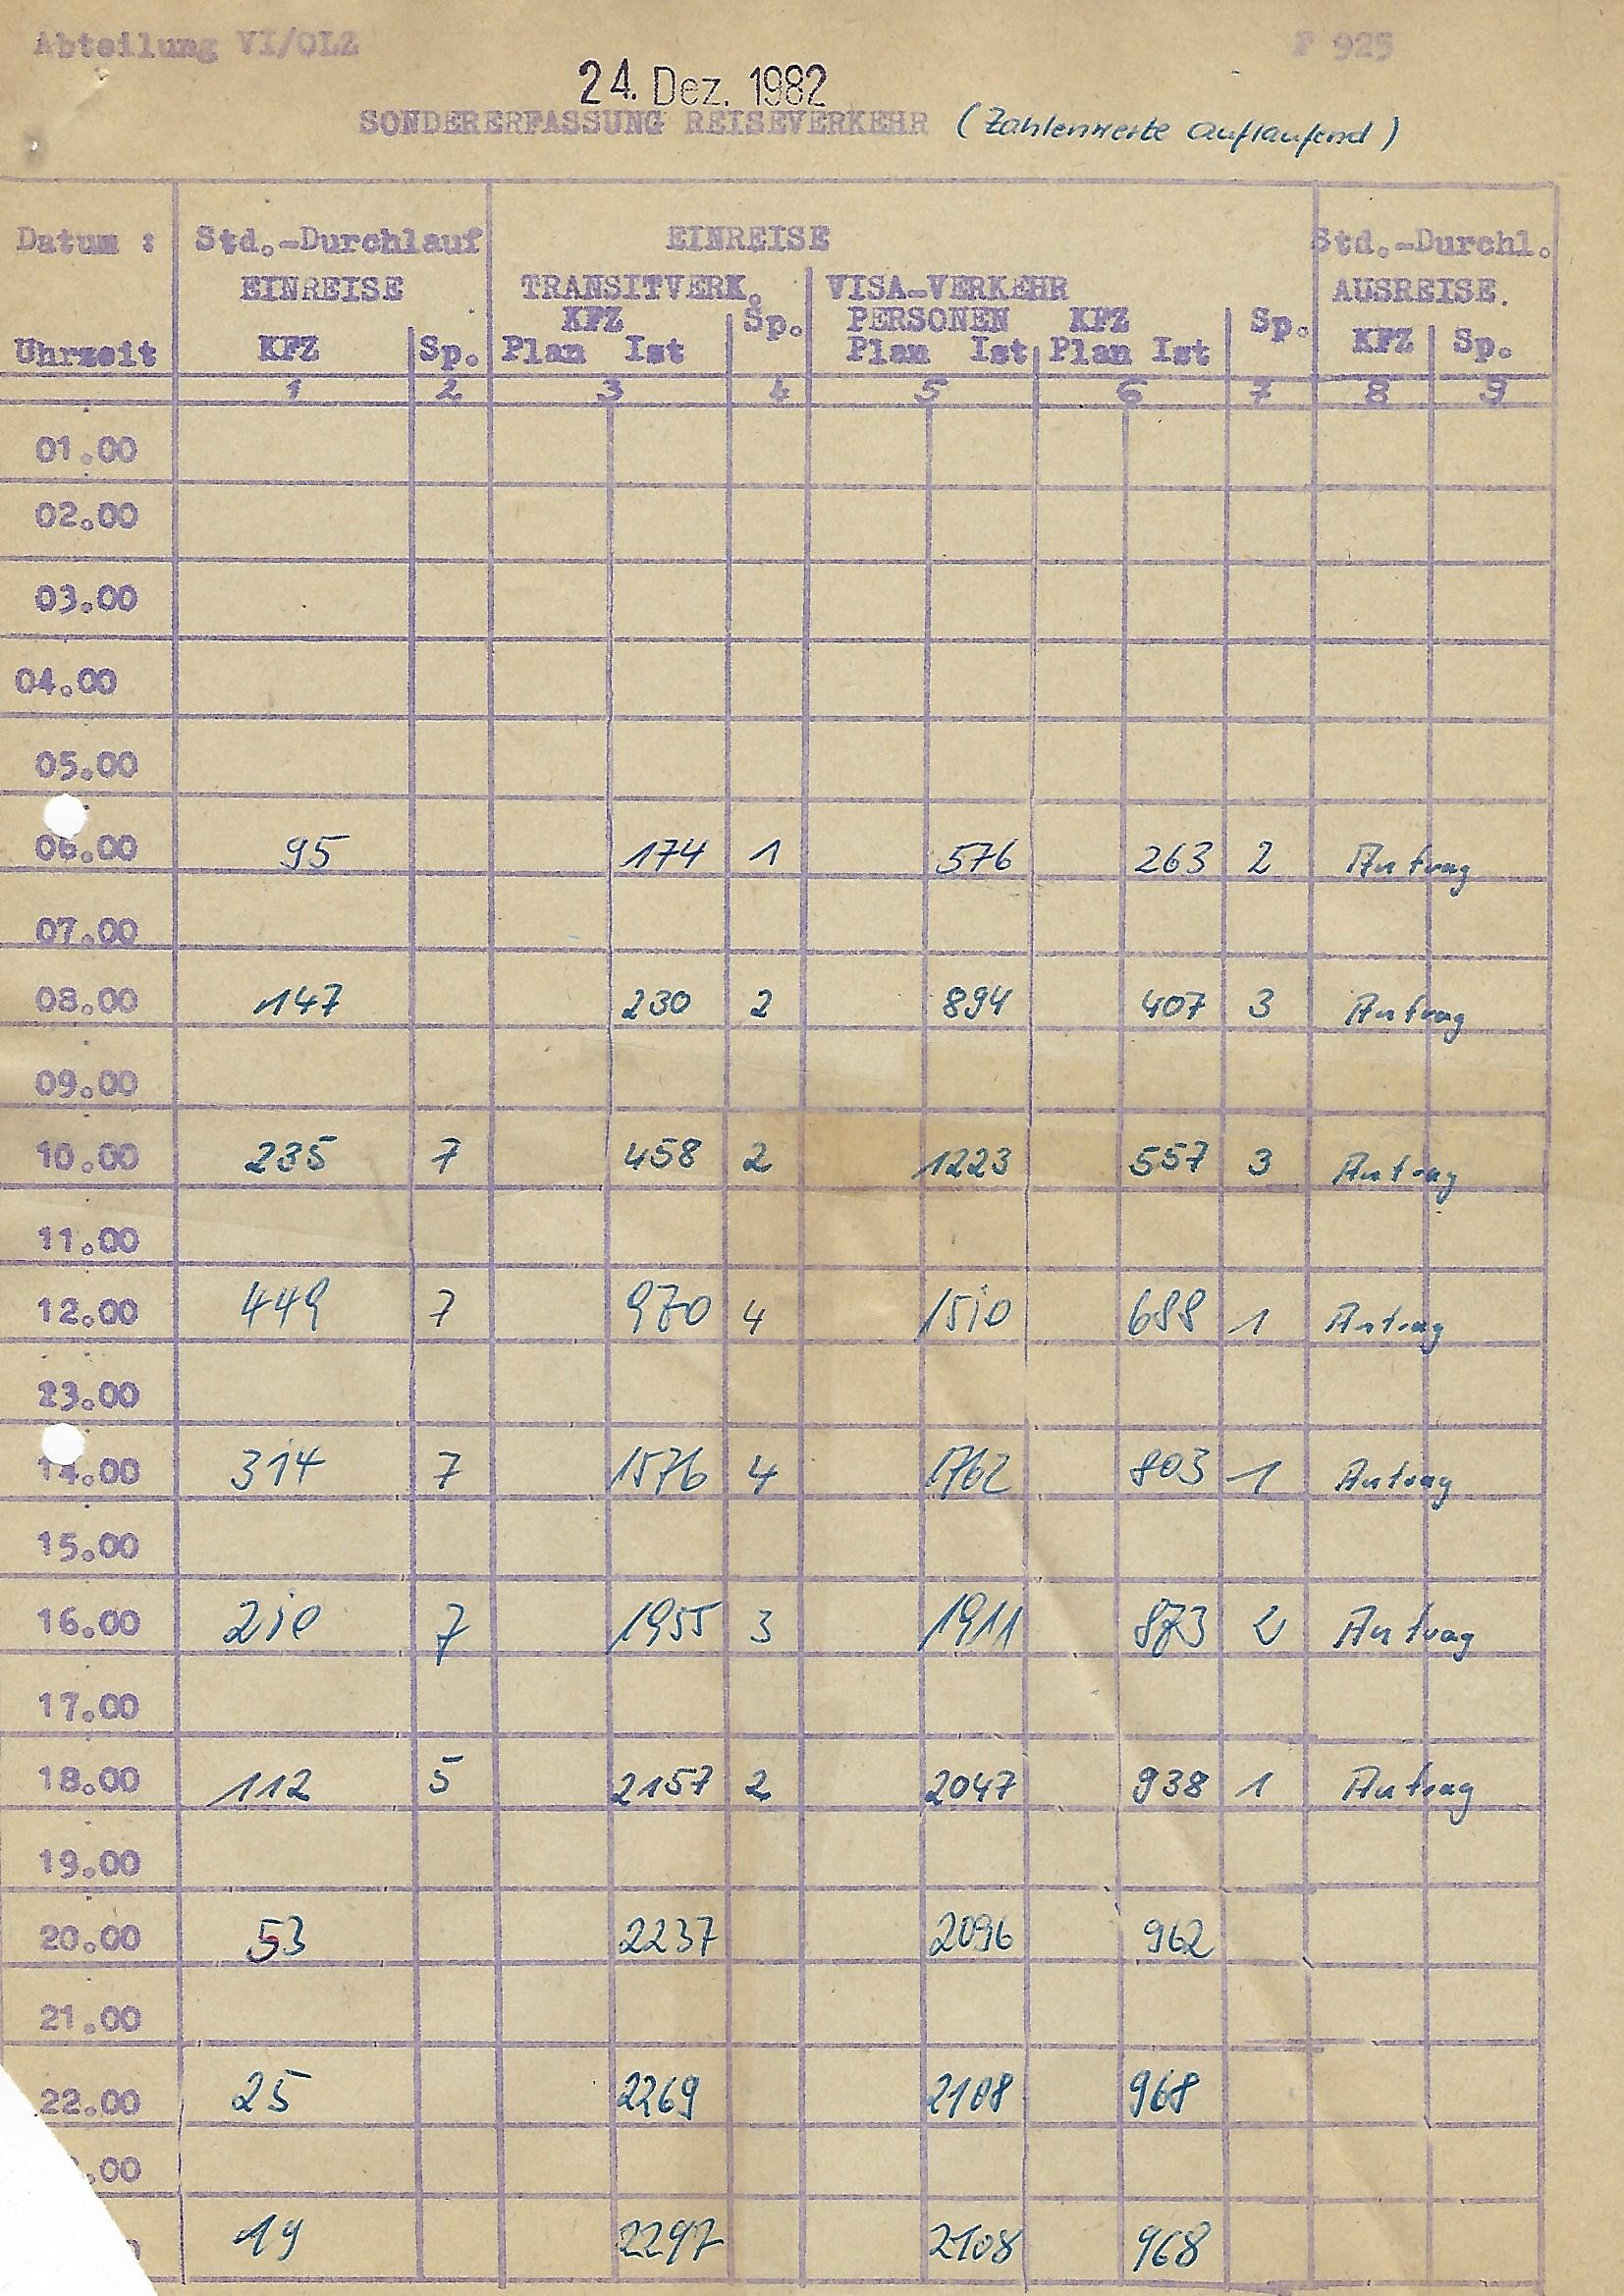 Abteilung VI/OLZ F 925
24. Dez. 1982
SONDERERFASSUNG REISEVERKEHR (Zahlenwerte auflaufend)
Datum : Std.-Durchlauf EINREISE Std.-Durchl.
EINREISE TRANSITVERK. VISA-VERKEHR AUSREISE.
KFZ Sp. PERSONEN KFZ Sp.
Uhrzeit KFZ Sp. Plan Ist Plan Ist Plan Ist KFZ Sp.
1 2 3 4 5 6 7 8 9
01.00
02.00
03.00
04.00
05.00
06.00 95 174 1 576 263 2 Antrag
07.00
08.00 147 230 2 894 407 3 Antrag
09.00
10.00 235 7 458 2 1223 557 3 Antrag
11.00
12.00 449 7 970 4 1510 688 1 Antrag
23.00
14.00 314 7 1576 4 1762 803 1 Antrag
15.00
16.00 210 7 1955 3 1911 873 2 Antrag
17.00
18.00 112 5 2157 2 2047 938 1 Antrag
19.00
20.00 53 2237 2096 962
21.00
22.00 25 2269 2108 968
.00
19 2297 2108 968